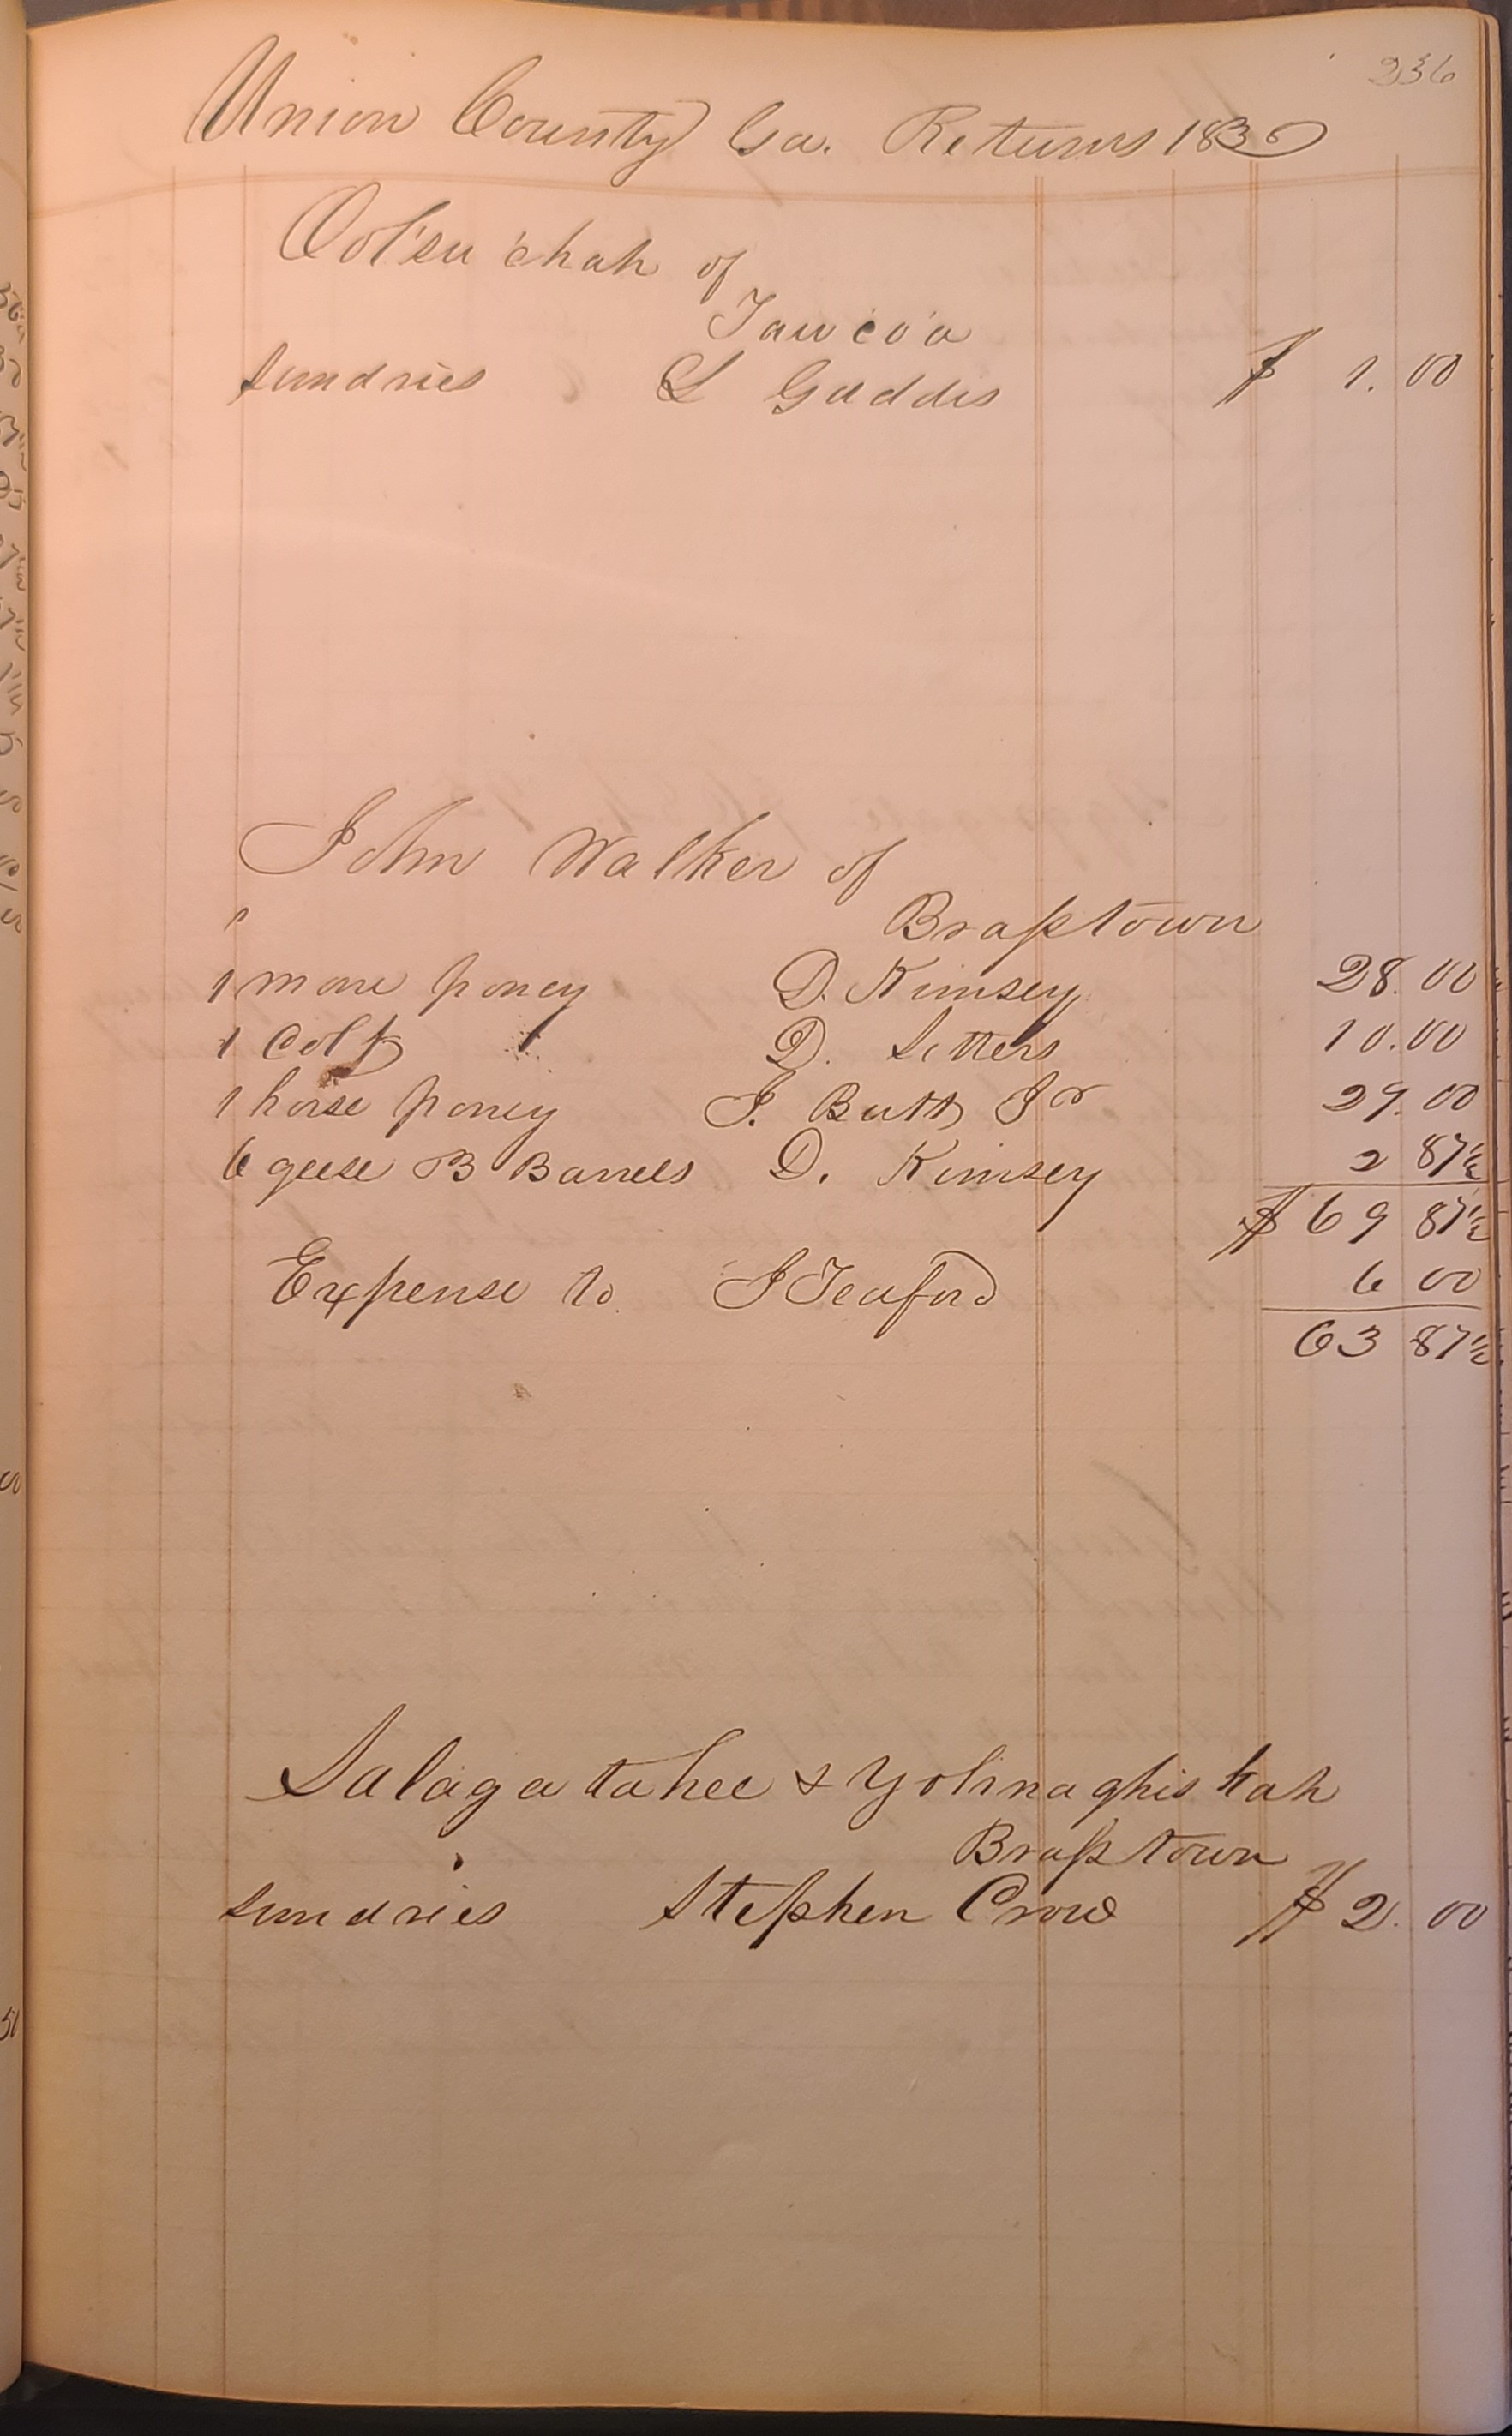 236
Union County Ga. Returns 1836
Ool'su'chah of
Taw'co'a
sundries L Gaddis $ 1.00
John Walker of
Brasstown
1 mare poney D. Kimsey 28.00
1 Colt D. Sitters 10.00
1 horse poney J. Butt Jr 29.00
6 geese B Barrels D. Kimsey 2 87½
$ 69 87½
Expense to J Teaford 6 00
63 87½
Salagatahee & Yohnaghiskah
Brasstown
sundries Stephen Crow $ 2.00